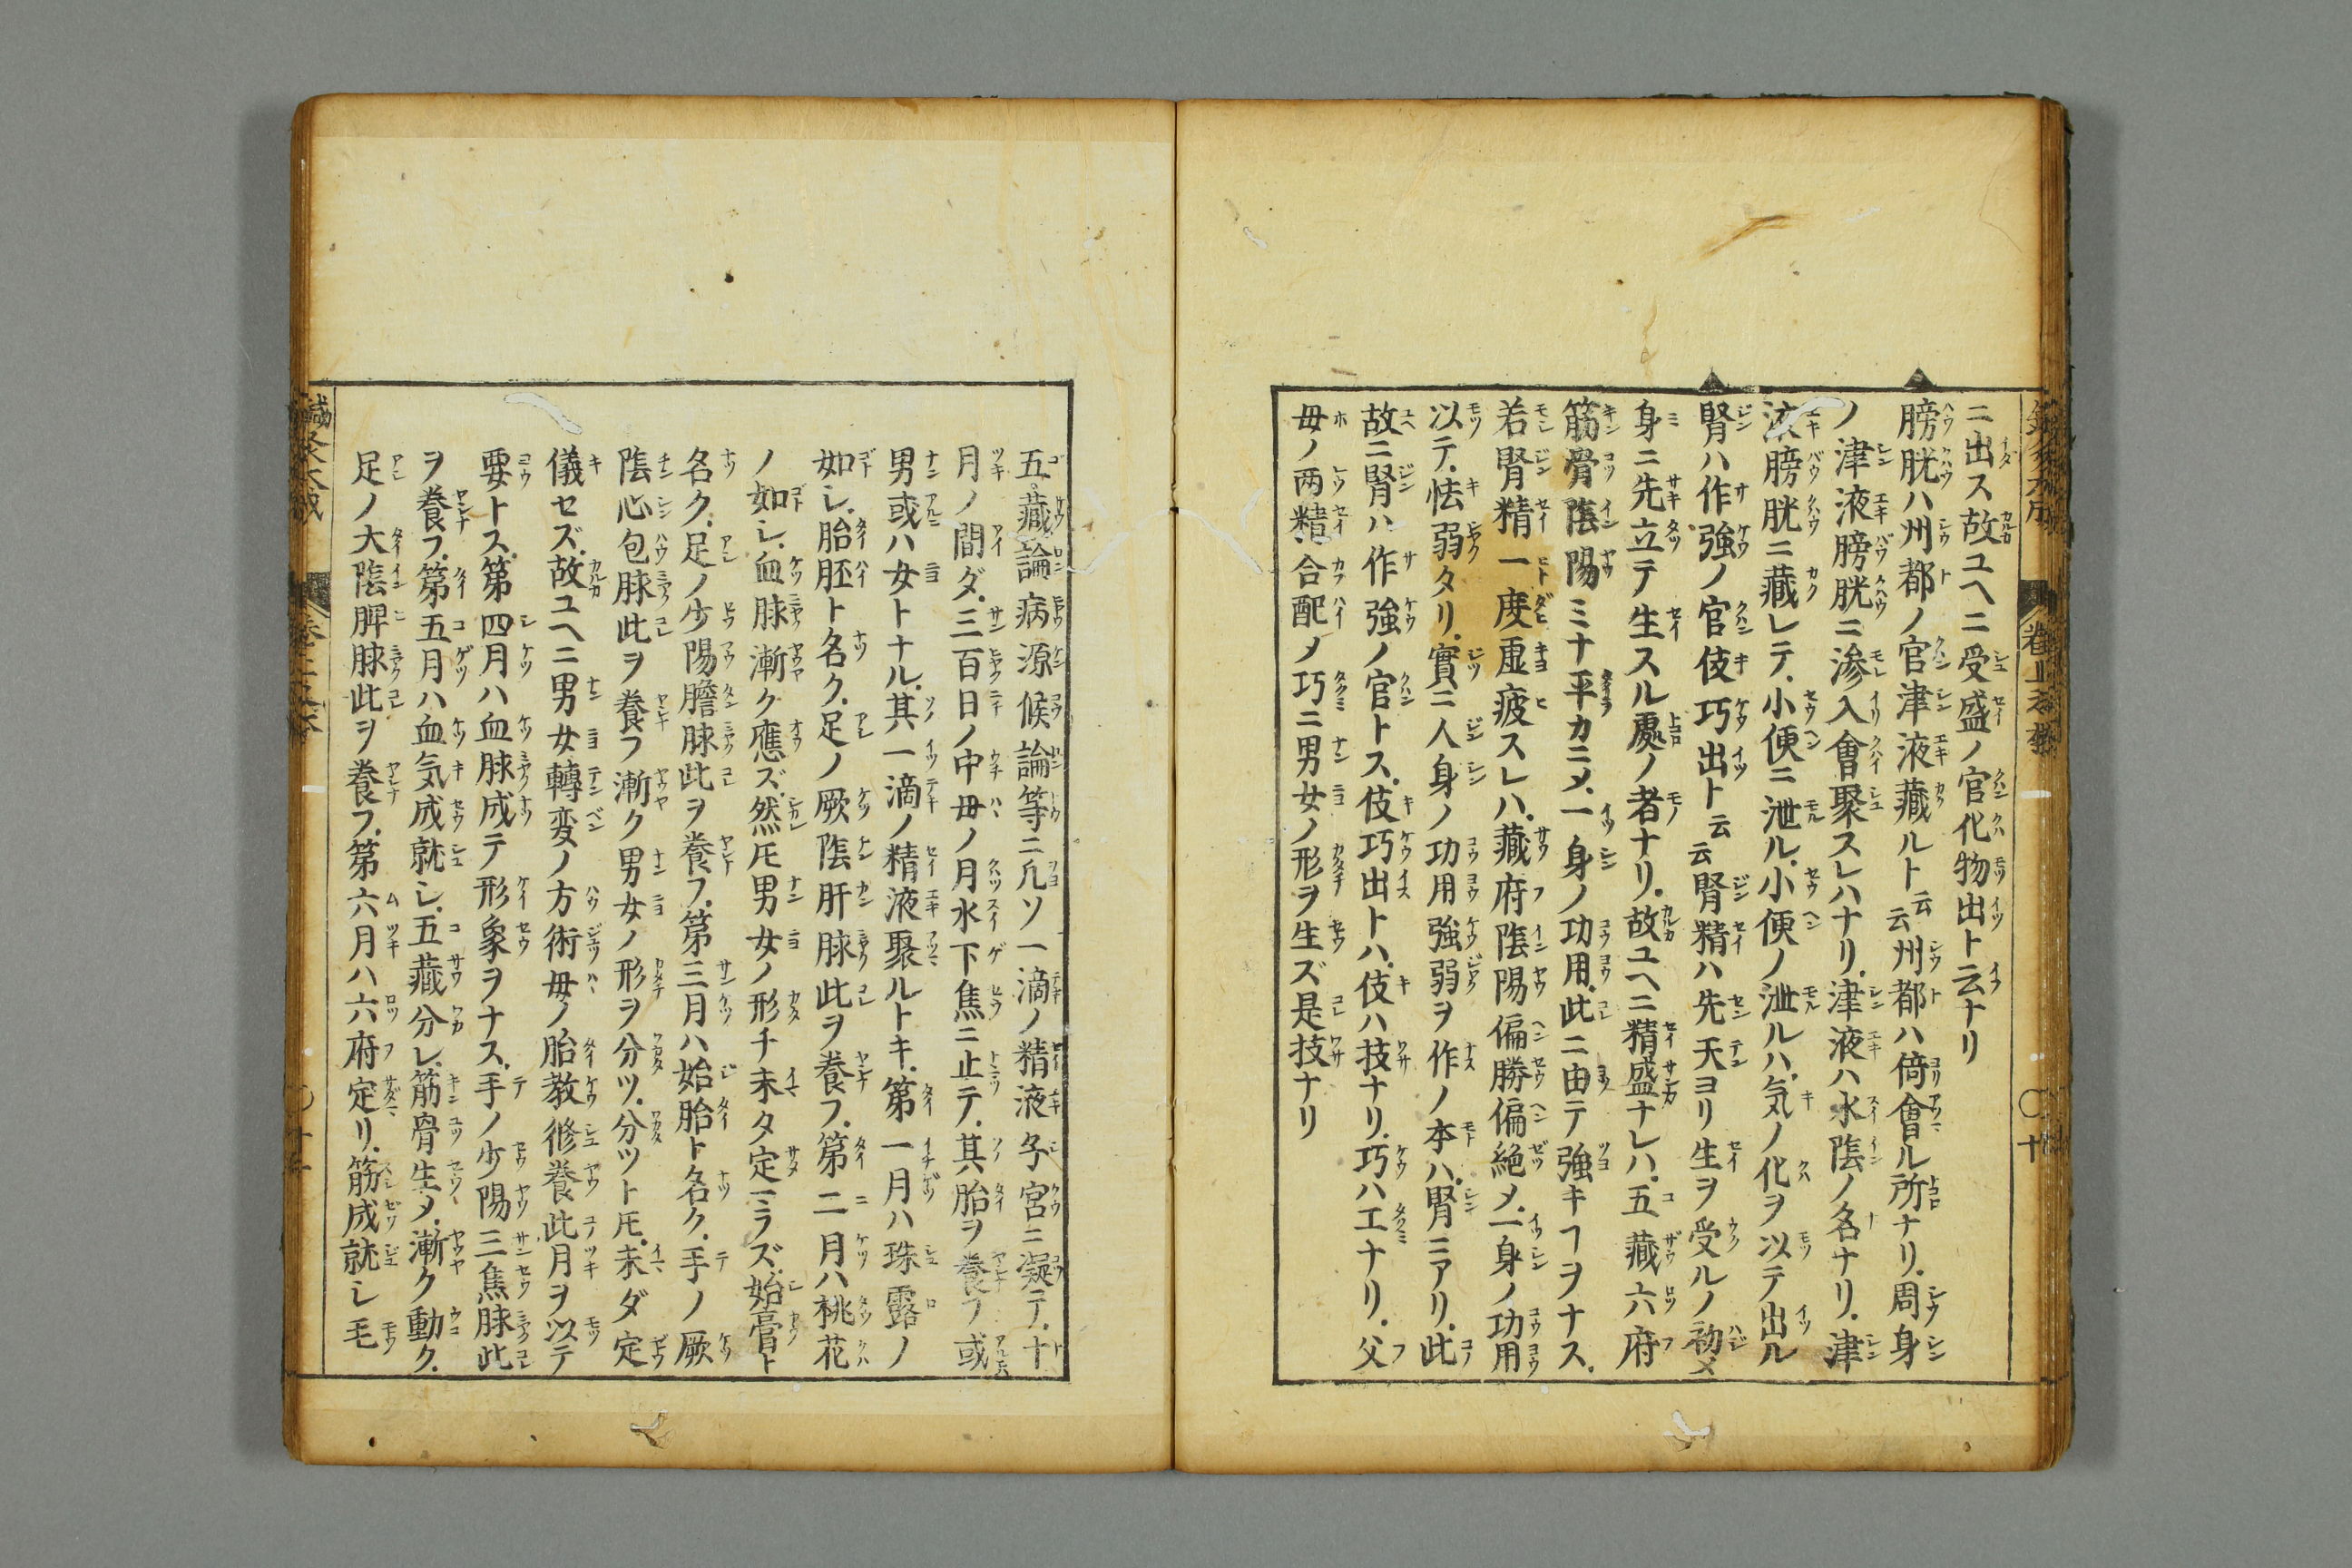 ニ出ス故ユヘニ受盛ノ官化物出ト云ナリ
膀胱ハ州都ノ官津液藏ルト云云州都ハ倚會ル所ナリ周身
ノ津液膀胱ニ滲入會聚スレハナリ津液ハ水陰ノ名ナリ津
液膀胱ニ藏レテ小便ニ泄ル小便ノ泄ルハ気ノ化ヲ以テ出ル
腎ハ作強ノ官伎巧出ト云云腎精ハ先天ヨリ生ヲ受ルノ初メ
身ニ先立テ生スル處ノ者ナリ故ユヘニ精盛ナレハ五藏六府
筋骨陰陽ミナ平カニメ一身ノ功用此ニ由テ強キヿヲナス
若腎精一度虚疲スレハ藏府陰陽偏勝偏絶メ一身ノ功用
以テ怯弱タリ實ニ人身ノ功用強弱ヲ作ノ本ハ腎ニアリ此
故ニ腎ハ作強ノ官トス伎巧出トハ伎ハ技ナリ巧ハ工ナリ父
母ノ両精合配メ巧ニ男女ノ形ヲ生ズ是技ナリ
五藏論病源候論等ニ凡ソ一滴ノ精液子宮ニ凝テ十
月ノ間ダ三百日ノ中母ノ月水下焦ニ止テ其胎ヲ養フ或
男或ハ女トナル其一滴ノ精液聚ルトキ第一月ハ珠露ノ
如シ胎胚ト名ク足ノ厥陰肝脉此ヲ養フ第二月ハ桃花
ノ如シ血脉漸ク應ズ然𪜈男女ノ形チ未タ定ミラズ始膏ト
名ク足ノ少陽膽脉此ヲ養フ第三月ハ始胎ト名ク手ノ厥
陰心包脉此ヲ養フ漸ク男女ノ形ヲ分ツ分ツト𪜈未ダ定
儀セズ故ユヘニ男女轉変ノ方術母ノ胎教修養此月ヲ以テ
要トス第四月ハ血脉成テ形象ヲナス手ノ少陽三焦脉此
ヲ養フ第五月ハ血気成就シ五藏分レ筋骨生メ漸ク動ク
足ノ大陰脾脉此ヲ養フ第六月ハ六府定リ筋成就シ毛